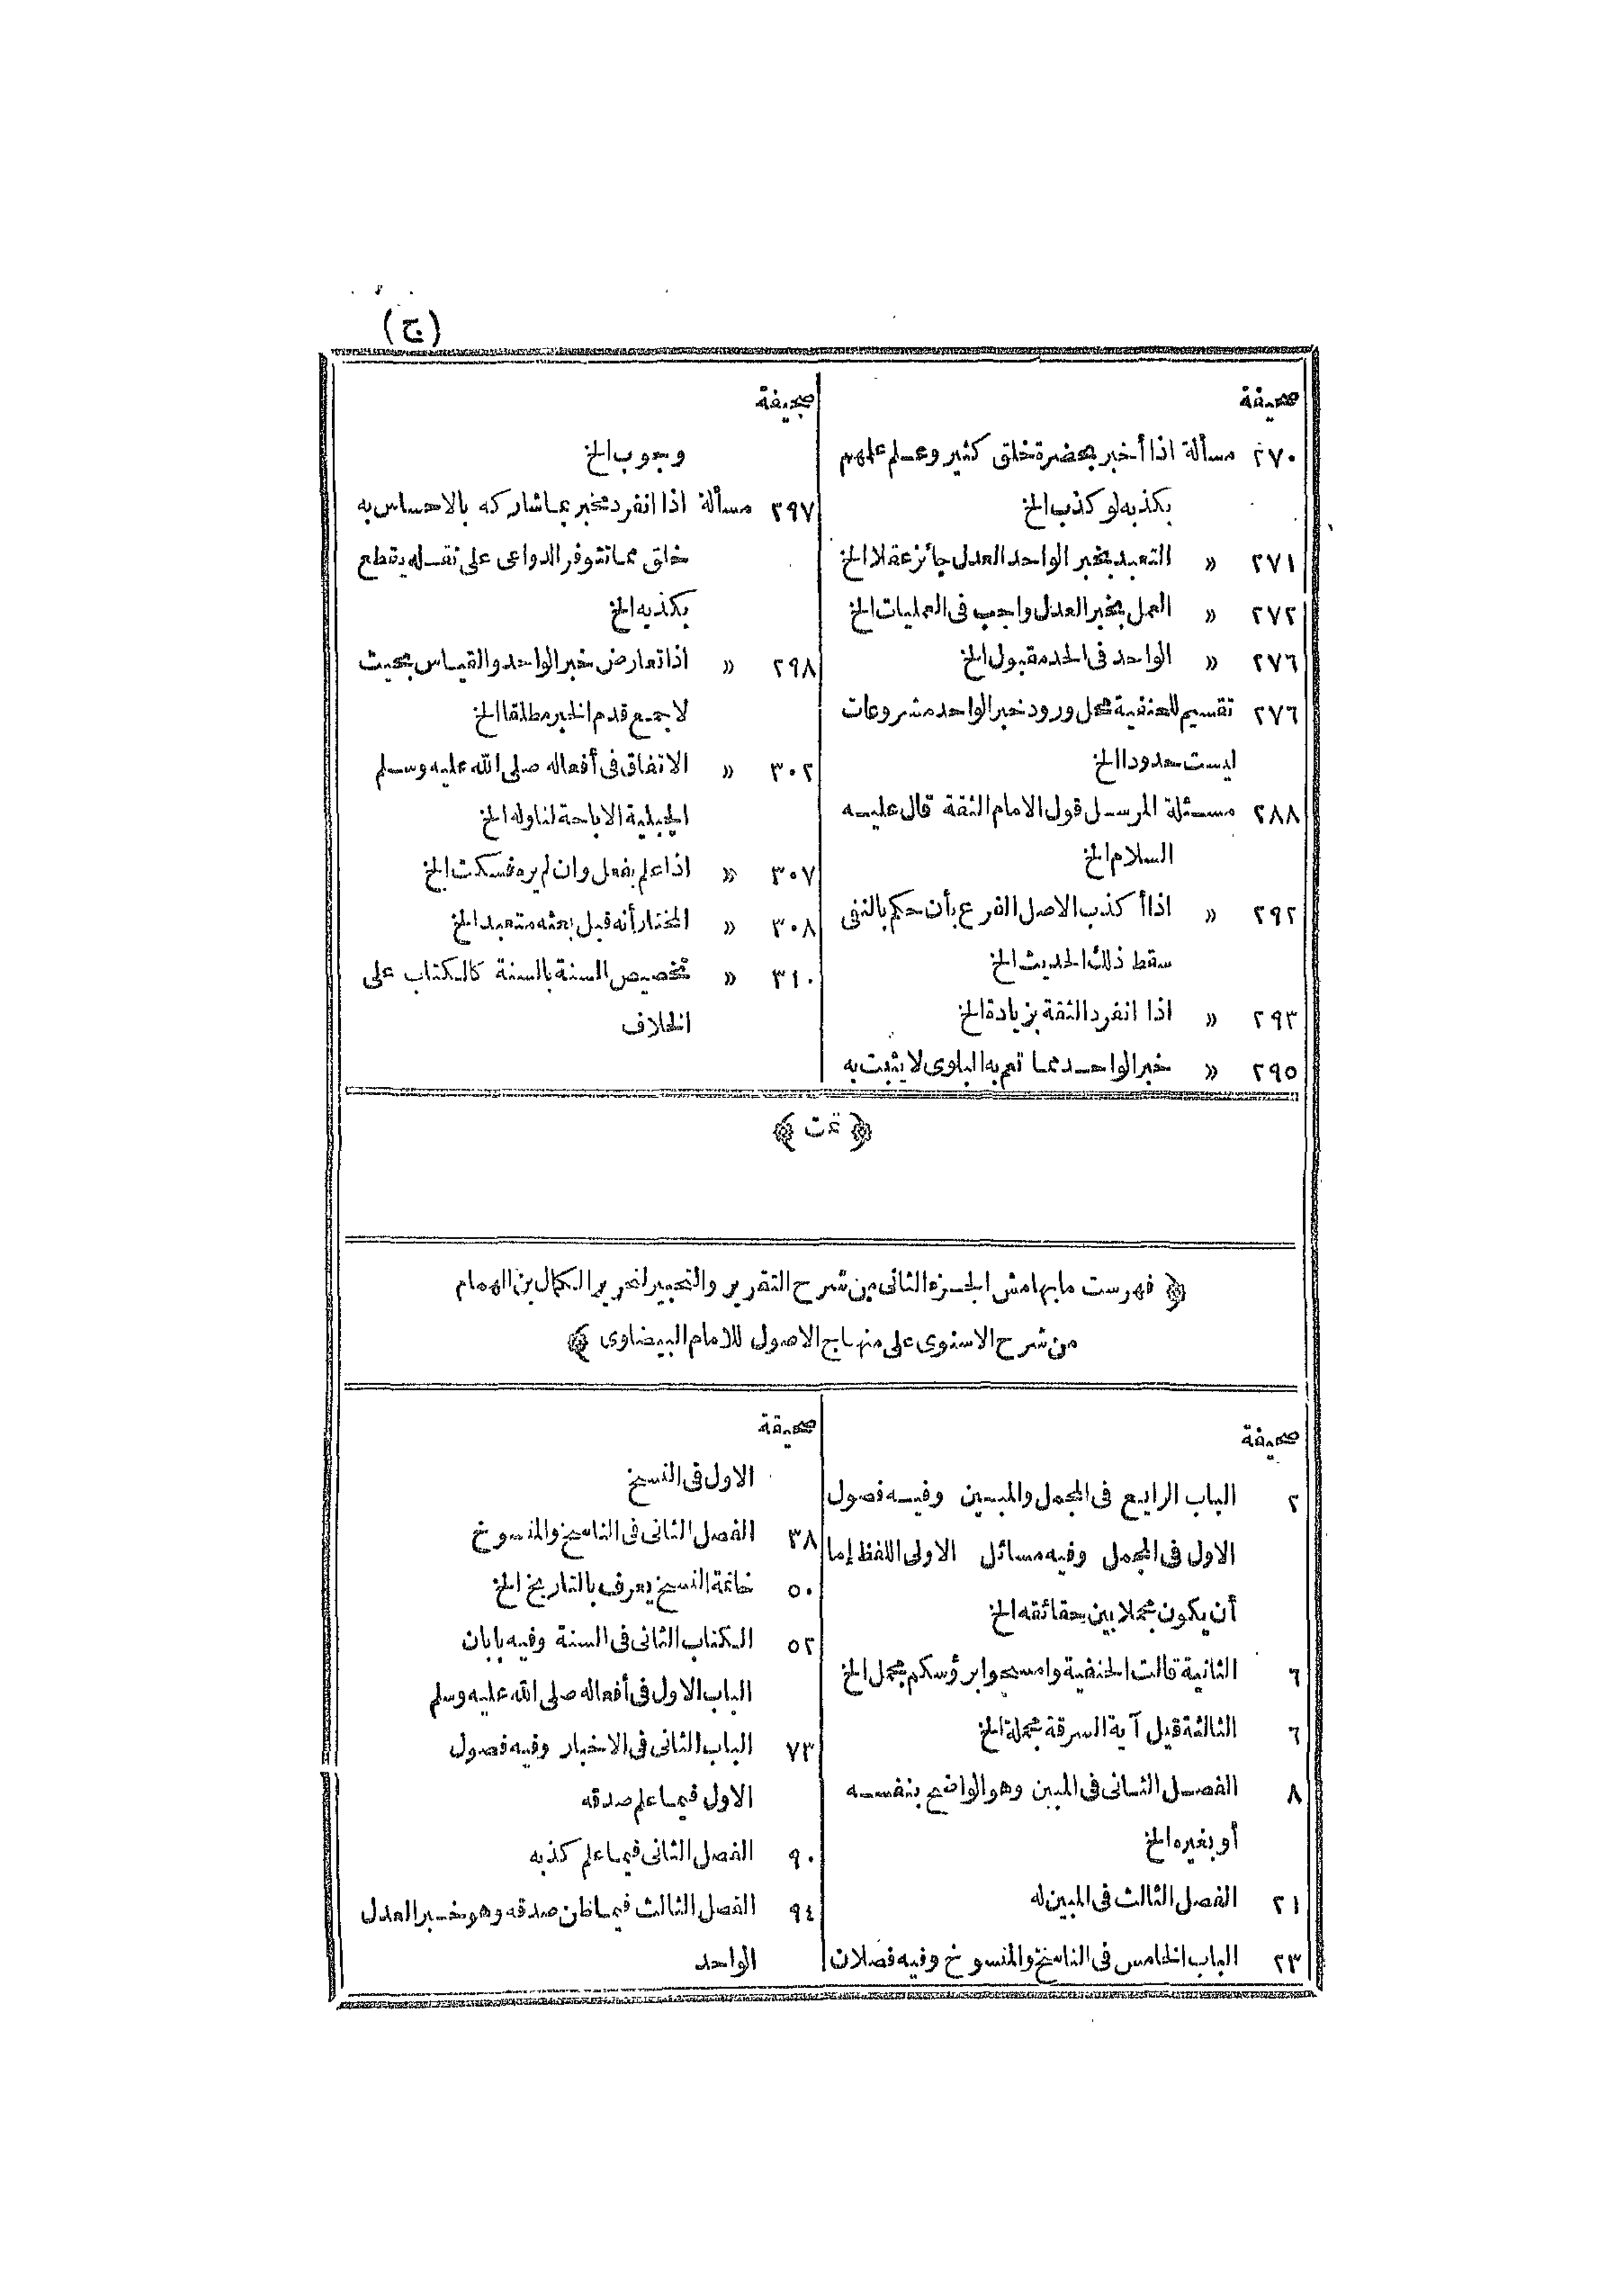 (ج)
صحيفة
٢٧٠ مسألة اذا أخبر بحضرة خلق كثير وعلم علمهم
بكذبه لو كذب الخ
٢٧١ » التعبد بخبر الواحد العدل جائز عقلا الخ
٢٧٢ » العمل بخبر العدل واجب فى العمليات الخ
٢٧٦ » الواحد فى الحد مقبول الخ
٢٧٦ تقسيم للحنفية محل ورود خبر الواحد مشروعات
ليست حدودا الخ
٢٨٨ مسئلة المرسل قول الامام الثقة قال عليه
السلام الخ
٢٩٢ » اذا أكذب الاصل الفرع بأن حكم بالنفى
سقط ذلك الحديث الخ
٢٩٣ » اذا انفرد الثقة بزيادة الخ
٢٩٥ » خبر الواحد مما تعم به البلوى لا يثبت به
صحيفة
وجوب الخ
٢٩٧ مسألة اذا انفرد مخبر بما شاركه بالاحساس به
خلق مما تتوفر الدواعى على نقله يقطع
بكذبه الخ
٢٩٨ » اذا تعارض خبر الواحد والقياس بحيث
لا جمع قدم الخبر مطلقا الخ
٣٠٢ » الاتفاق فى أفعاله صلى الله عليه وسلم
الجبلية الاباحة لنا وله الخ
٣٠٧ » اذا علم بفعل وان لم يره فسكت الخ
٣٠٨ » المختار أنه قبل بعثه متعبد الخ
٣١٠ » تخصيص السنة بالسنة كالكتاب على
الخلاف
﴿ تمت ﴾
﴿ فهرست ما بهامش الجزء الثانى من شرح التقرير والتحبير لتحرير الكمال بن الهمام
من شرح الاسنوى على منهاج الاصول للامام البيضاوى ﴾
صحيفة
٢ الباب الرابع فى المجمل والمبين وفيه فصول
الاول فى المجمل وفيه مسائل الاولى اللفظ إما
أن يكون مجملا بين حقائقه الخ
٦ الثانية قالت الحنفية وامسحوا برؤسكم مجمل الخ
٦ الثالثة قيل آية السرقة مجملة الخ
٨ الفصل الثانى فى المبين وهو الواضح بنفسه
أو بغيره الخ
٢١ الفصل الثالث فى المبين له
٢٣ الباب الخامس فى الناسخ والمنسوخ وفيه فصلان
صحيفة
الاول فى النسخ
٣٨ الفصل الثانى فى الناسخ والمنسوخ
٥٠ خاتمة النسخ يعرف بالتاريخ الخ
٥٢ الكتاب الثانى فى السنة وفيه بابان
الباب الاول فى أفعاله صلى الله عليه وسلم
٧٣ الباب الثانى فى الاخبار وفيه فصول
الاول فيما علم صدقه
٩٠ الفصل الثانى فيما علم كذبه
٩٤ الفصل الثالث فيما ظن صدقه وهو خبر العدل
الواحد